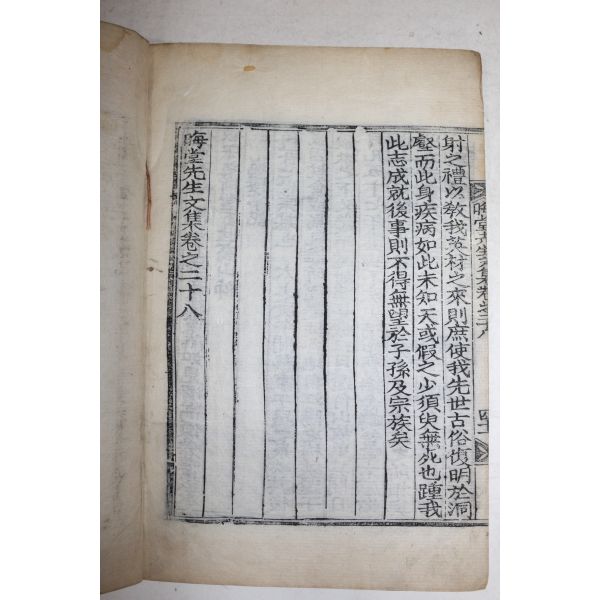 晦堂先生文集卷之二十八
射之禮以敎我村之來則庶使我先世古俗復明於洞
壑而此身疾病如此未知天或假之少須臾無死也踵我
此志成就後事則不得無望於子孫及宗族矣
晦堂先生文集卷之二十八